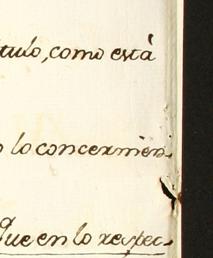 tulo, como està
lo concernien-
Que en lo respec-